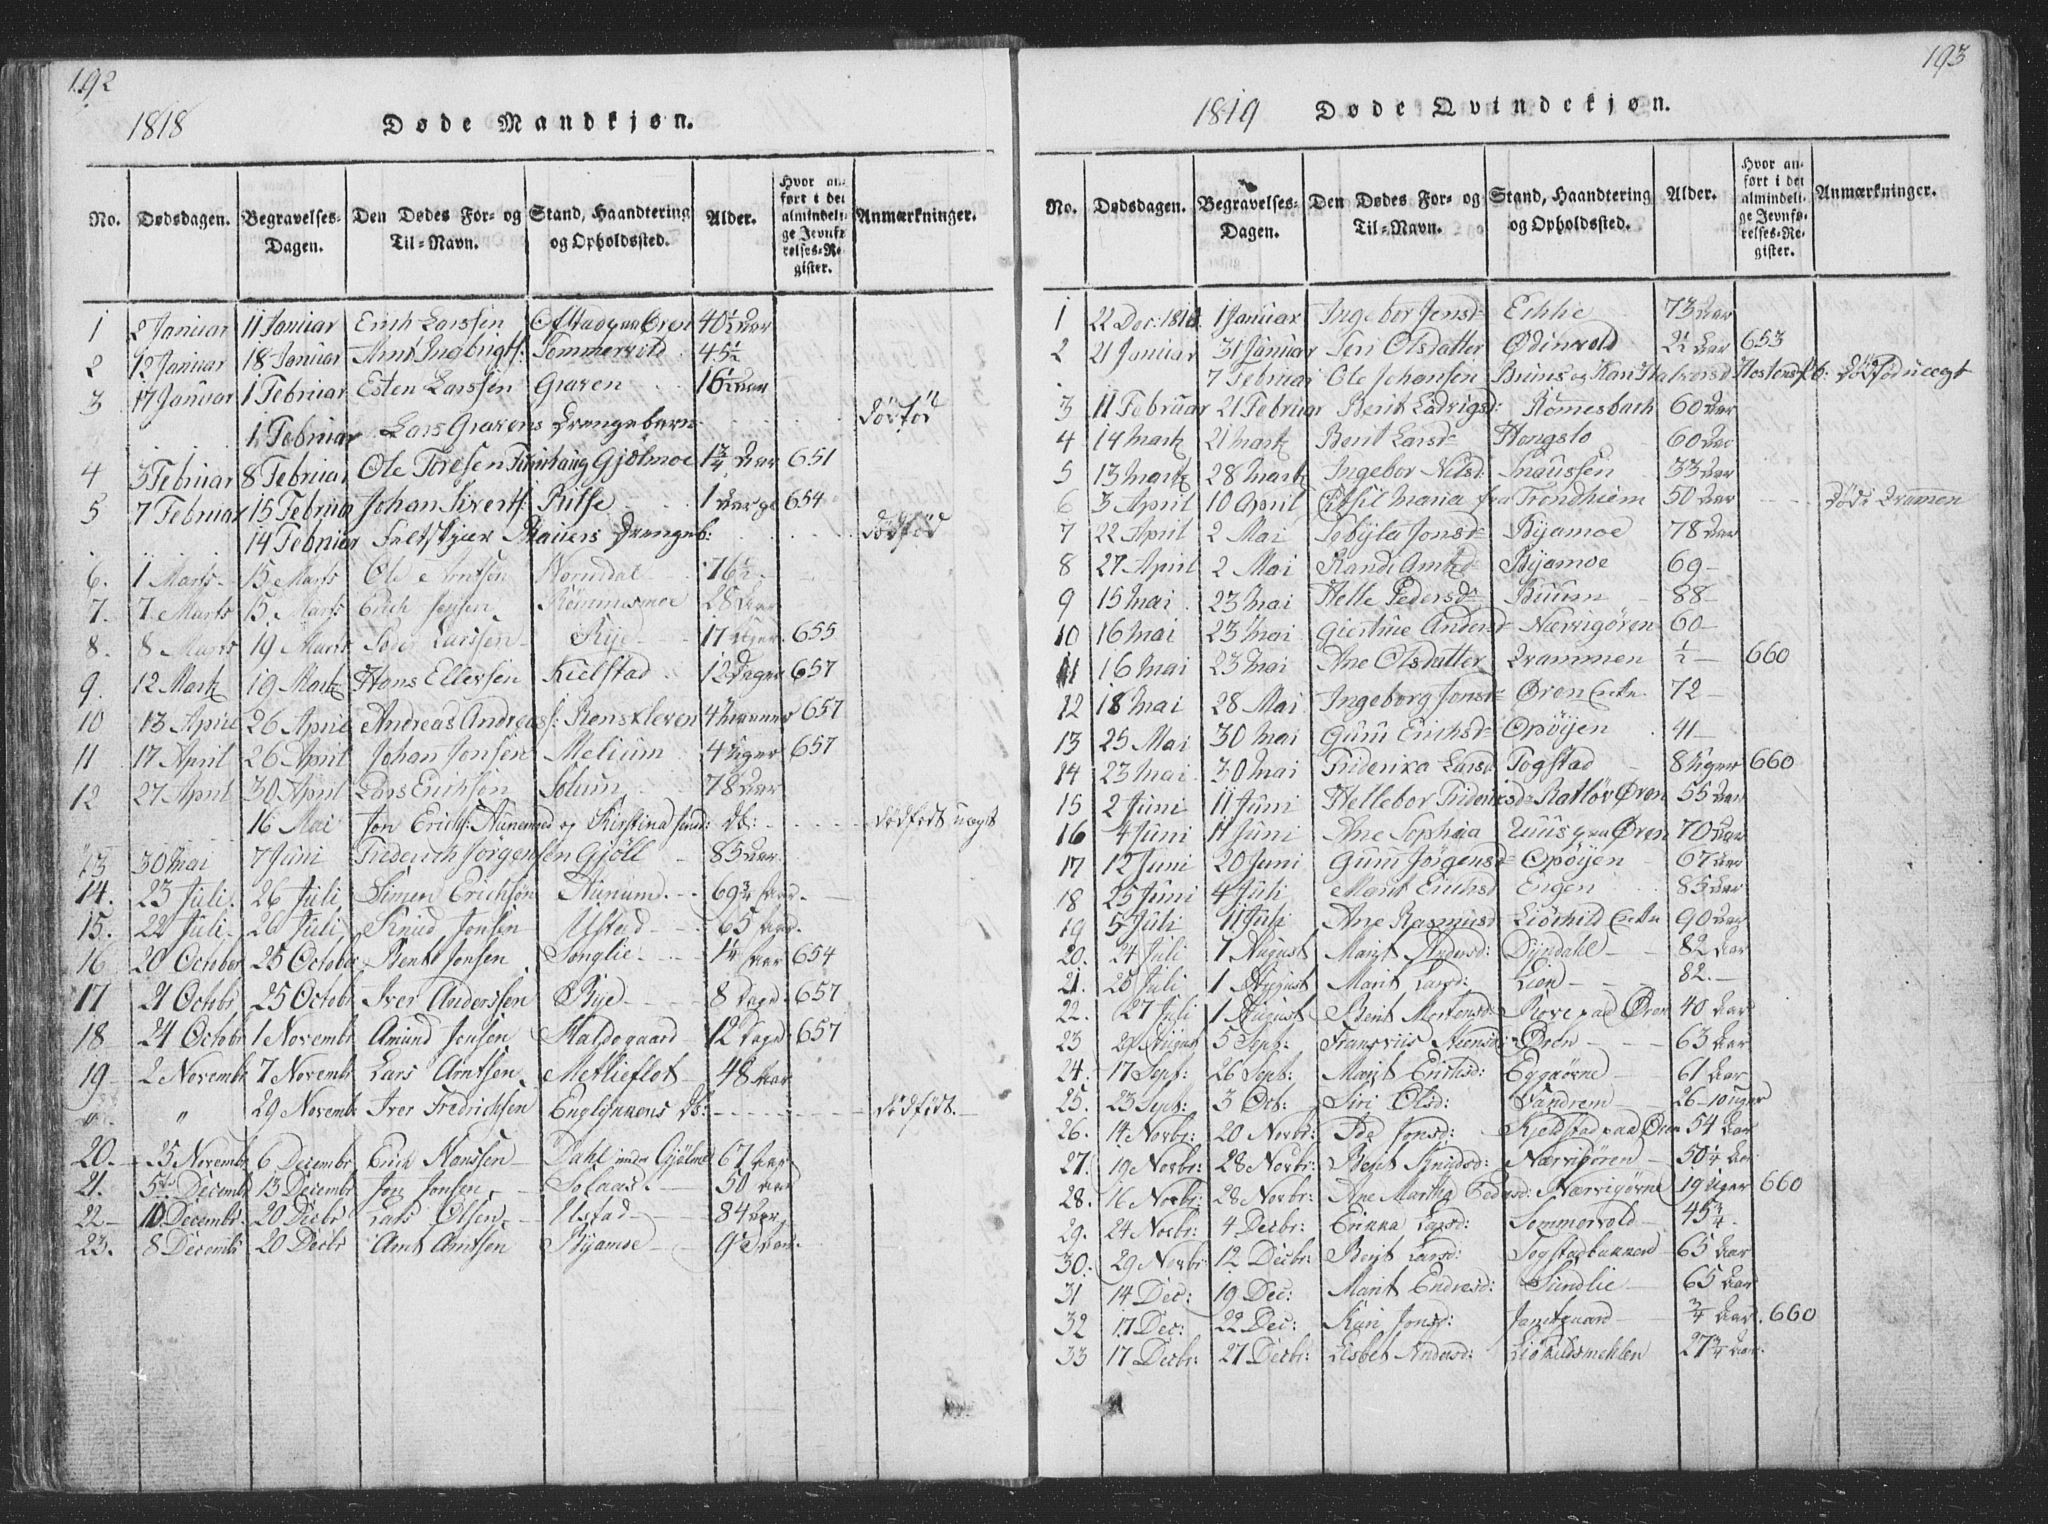 192
1818 Døde Mandkjøn.
No. Dødsdagen. Begravelses-Dagen. Den Dødes For- og Til-Navn. Stand, Haandtering og Opholdssted. Alder. Hvor anført i det almindelige Jevnførelses-Register. Anmærkninger.
1 2 Januar 11 Januar Erich Larssen Ofstad paa Øren 40½ Aar
2 12 Januar 18 Januar Arnt Ingebrigts: Sommervold 45½
3 17 Januar 1 Februar Esten Larssen Graven 16½ Aar
1 Februar Lars Gravens Drengebarn dødfød
4 3 Februar 8 Februar Ole Toresen Gjølmoe 1¾ Aar 651
5 7 Februar 15 Februar Johan Sivertss: Kilse 1 654
14 Februar Feltskjær Drengeb: dødfød
6. 1 Marts 15 Marts Ole Arntsen Norendal 76½
7. 7 Marts 15 Marts Erich Rømmesmoe 28 Aar
8. 8 Marts 19 Marts Peder Larssen Rye 17 Uger 655
9. 12 Marts 19 Marts Hans Ellefsen Kielstad 12 Dager 657
10 13 April 26 April Andreas Andreas: Renskleven 4 657
11 17 April 26 April Johan Jonsen Melium 4 Uger 657
12 27 April 30 April Lars Erichsøn Solum 78 Aar
16 Mai Jon Erichs: og Kirstina dødfødt uægt
13 30 Mai 7 Juni Frederich Jørgensen Gjøll 85 Aar
14. 23 Juli. 26 Juli Simen Erichsøn Aunum 69¾ Aar
15. 22 Juli. 26 Juli Knud Jonsen Ustad 65 Aar
16 20 October 25 October Bent Jonsen Songlie 1¼ Aar 654
17 21 Octobr 25 Octobr Iver Anderssen Rye 8 Dage 657
18 24 Octobr 1 Novembr Amund Jonsen Haldogaard 12 Dage 657
19 2 Novembr 7 Novembr Lars Arntsen Metlieflot 48 Aar
" 29 Novembr Iver Fredrichsen Englykkens Db: dødfødt.
20. 25 Novembr 6 Decembr Erich Hanssen Dahl under Gjølme 67 Aar
21. 5 Decembr 13 Decembr Jon Jonsen Solaas 50 Aar
22 10 Decembr. 20 Decbr Lars Olsen Ustad 84 Aar
23. 8 Decembr 20 Decbr Arnt Arntsen Byamoe
193
1819 Døde Qvindekjøn.
No. Dødsdagen. Begravelses-Dagen. Den Dødes For- og Til-Navn. Stand, Haandtering og Opholdssted. Alder. Hvor anført i det almindelige Jevnførelses-Register. Anmærkninger.
1 22 Dec: 1818. 1 Januar Ingebor Jensd: Echlie 73 Aar
2 21 Januar 31 Januar Seri Olsdatter Ødinvold 2½ Aar 653
7 Februar Ole Johansen Bruns og Kari Halvorsd
3 11 Februar 21 Februar Berit Ludvigsd: Rømesbach 60 Aar
4 14 Martz 21 Martz Berit Larsd: Hongslo 60 Aar
5 13 Martz 28 Martz Ingebor Nilsd. Snaussen 33 Aar
6 3 April 10 April Maria fra Trondhiem 50 Aar død i Drammen
7 22 April 2 Mai Sebyla Jonsd: Byamoe 78 Aar
8 27 April 2 Mai Randi Arntzd: Byamoe 69
9 15 Mai 23 Mai Helle Pedersd: Buum 88
10 16 Mai 23 Mai Giertrue Andersd: Nærvigøren 60
11 16 Mai 23 Mai Ane Olsdatter Drammen ½ 660
12 18 Mai 28 Mai Ingeborg Jonsd: Øren Enke 72
13 25 Mai 30 Mai Guru Erichsd: Opøyen 41
14 23 Mai 30 Mai Friderika Larsd: Togstad 8 Uger 660
15 2 Juni 11 Juni Hellebor Friderichsd: Ratløv Øren 55 Aar
16 4 Juni 11 Juni Ane Sophia Huus paa Øren 70 Aar
17 12 Juni 20 Juni Guru Jørgensd: Opøyen 67 Aar
18 25 Juni 4 Juli Marit Erichsd: Engen 85 Aar
19 5 Juli 11 Juli Ane Rasmusd: Liøkild Enke 90 Aar
20. 24 Juli 1 August Marit Andersd: Dyndahl 82 Aar
21. 25 Juli 1 August Marit Larsd: Lien 82.
22. 27 Juli 1 August Berit Mortensd: paa Øren 40 Aar
23 August 5 Sept: Øren 63 Aar
24. 17 Sept: 26 Sept: Marit Erichsd: Eggaørne 61 Aar
25. 23 Sept: 3 Oct: Siri Olsd: Vandrem 26 - 10 Uger
26. 14 Novbr: 20 Novbr: Ida Jonsd: Kjelstad paa Øren 54 Aar
27. 19 Novbr: 28 Novbr: Berit Knudsd: Nærvigøren 50¼ Aar
28. 16 Novbr: 28 Novbr: Ane Martha Pedersd: Nærvigørne 19 Uger 660
29. 24 Novbr: 4 Decbr: Erinna Larsd: Sommervold 45¾
30. 29 Novbr: 12 Decbr: Berit Larsd: Togstadbakken 65 Aar
31 14 Dec: 19 Dec: Marit Endresd: Sundlie 65 Aar
32 17 Dec: 22 Dec: Kari Jonsd: Jamtgaard ¾ Aar. 660
33 17 Decbr: 27 Decbr: Lisbet Andersd: Liøkildsmehlen 27¾ Aar.